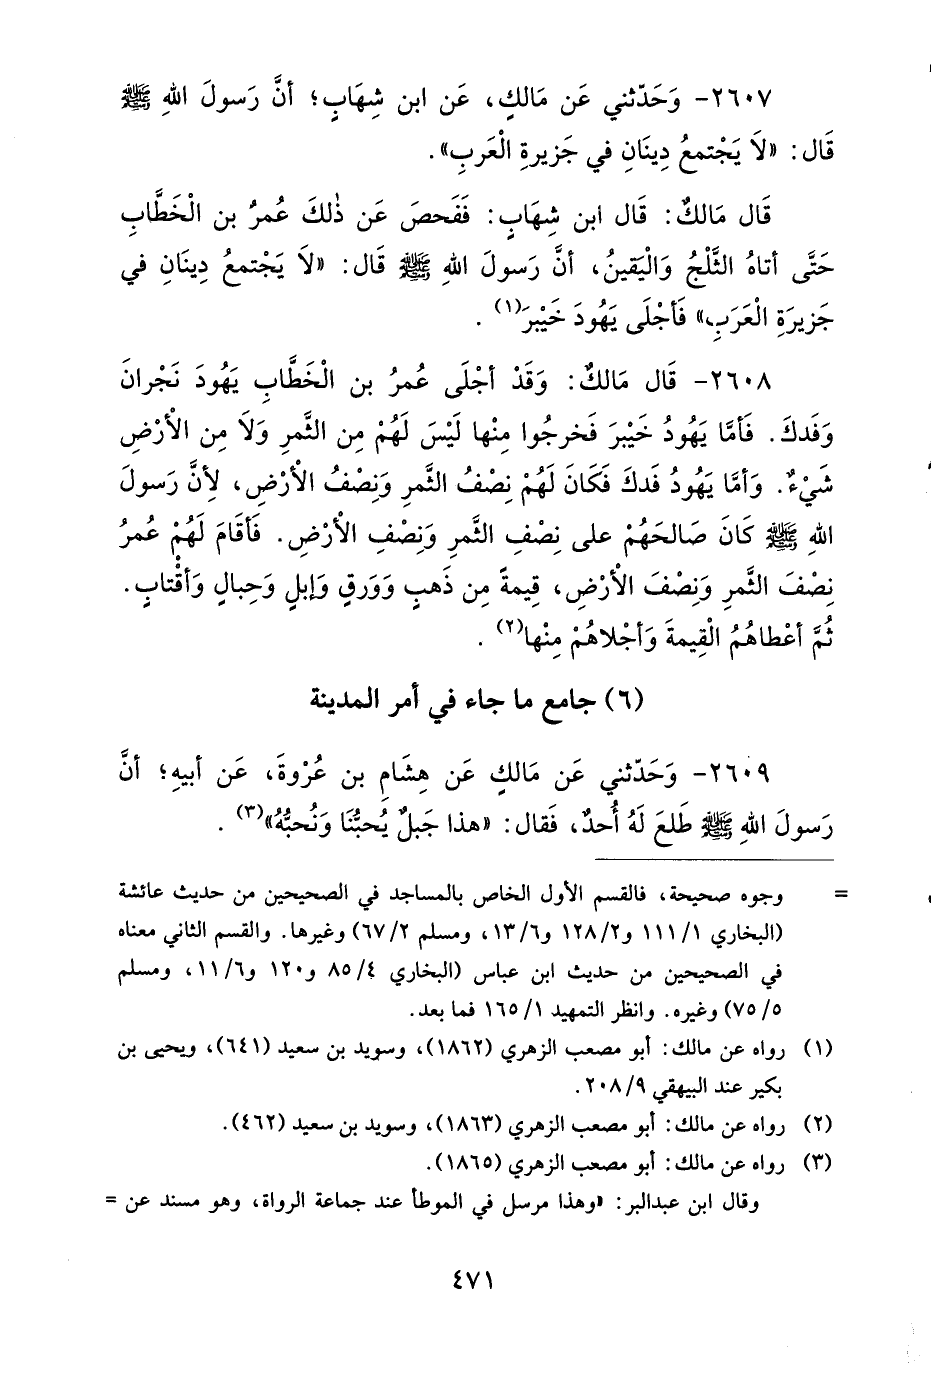 ٢٦٠٧- وَحَدّثني عَن مَالكٍ، عَن ابن شِهَابٍ؛ أنَّ رَسولَ اللهِ ﷺ
قَال: «لاَ يَجْتمعُ دِينَانِ في جَزيرةِ الْعَربِ».
قَال مَالكٌ: قَال ابن شِهَابٍ: فَفَحصَ عَن ذٰلكَ عُمرُ بن الْخَطَّابِ
حَتَّى أتاهُ الثَّلْجُ وَالْيَقينُ، أنَّ رَسولَ اللهِ ﷺ قَال: «لاَ يَجْتمعُ دِينَانِ في
جَزيرَةِ الْعَرَبِ» فَأجْلَى يَهُودَ خَيْبرَ(١) .
٢٦٠٨- قَال مَالكٌ: وَقَدْ أجْلَى عُمرُ بن الْخَطَّابِ يَهُودَ نَجْرانَ
وَفَدكَ. فَأمَّا يَهُودُ خَيْبرَ فَخرجُوا مِنْها لَيْسَ لَهُمْ مِن الثَّمرِ وَلَا مِن الأرْضِ
شَيْءٌ. وَأمَّا يَهُودُ فَدكَ فَكَانَ لَهُمْ نِصْفُ الثَّمرِ وَنِصْفُ الأرْضِ، لِأنَّ رَسولَ
اللهِ ﷺ كَانَ صَالحَهُمْ على نِصْفِ الثَّمرِ وَنِصْفِ الأرْضِ. فَأقَامَ لَهُمْ عُمرُ
نِصْفَ الثَّمرِ وَنِصْفَ الأرْضِ، قِيمةً مِن ذَهبٍ وَوَرقٍ وَإبلٍ وَحِبالٍ وَأقْتابٍ.
ثُمَّ أعْطاهُمُ الْقِيمةَ وَأجْلاهُمْ مِنْها(٢) .
(٦) جامع ما جاء في أمر المدينة
٢٦٠٩- وَحَدّثني عَن مَالكٍ عَن هِشَامِ بن عُرْوةَ، عَن أبيهِ؛ أنَّ
رَسولَ اللهِ ﷺ طَلعَ لَهُ أُحدٌ، فَقال: «هذا جَبلٌ يُحبُّنَا وَنُحبُّهُ»(٣) .
= وجوه صحيحة، فالقسم الأول الخاص بالمساجد في الصحيحين من حديث عائشة
(البخاري ١/ ١١١ و٢/ ١٢٨ و٦/ ١٣، ومسلم ٢/ ٦٧) وغيرها. والقسم الثاني معناه
في الصحيحين من حديث ابن عباس (البخاري ٤/ ٨٥ و١٢٠ و٦/ ١١، ومسلم
٥/ ٧٥) وغيره. وانظر التمهيد ١/ ١٦٥ فما بعد.
(١) رواه عن مالك: أبو مصعب الزهري (١٨٦٢)، وسويد بن سعيد (٦٤١)، ويحيى بن
بكير عند البيهقي ٩/ ٢٠٨.
(٢) رواه عن مالك: أبو مصعب الزهري (١٨٦٣)، وسويد بن سعيد (٤٦٢).
(٣) رواه عن مالك: أبو مصعب الزهري (١٨٦٥).
وقال ابن عبدالبر: «وهذا مرسل في الموطأ عند جماعة الرواة، وهو مسند عن =
٤٧١